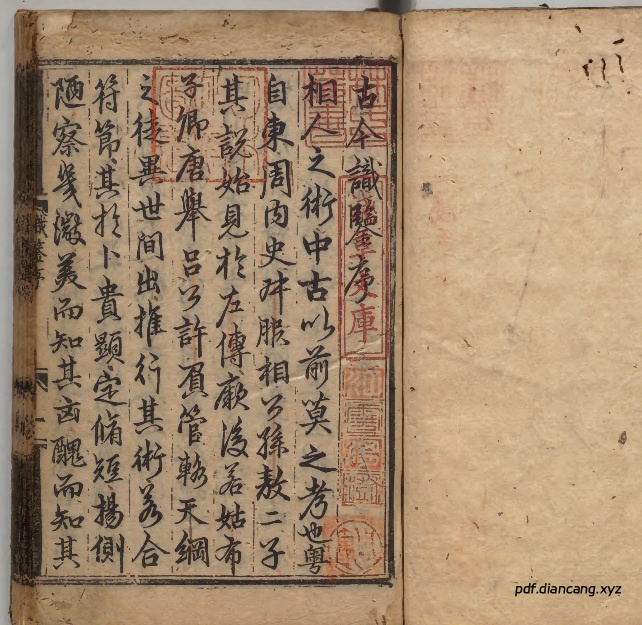 古今識鑒序
相人之術中古以前莫之考也粵
自東周內史叔服相公孫敖二子
其說始見於左傳厥後若姑布
子卿唐舉呂公許負管輅天綱
之徒異世間出推行其術若合
符節其於卜貴顯定脩短揚側
陋察幾微美而知其凶醜而知其
識鑒序
pdf.diancang.xyz